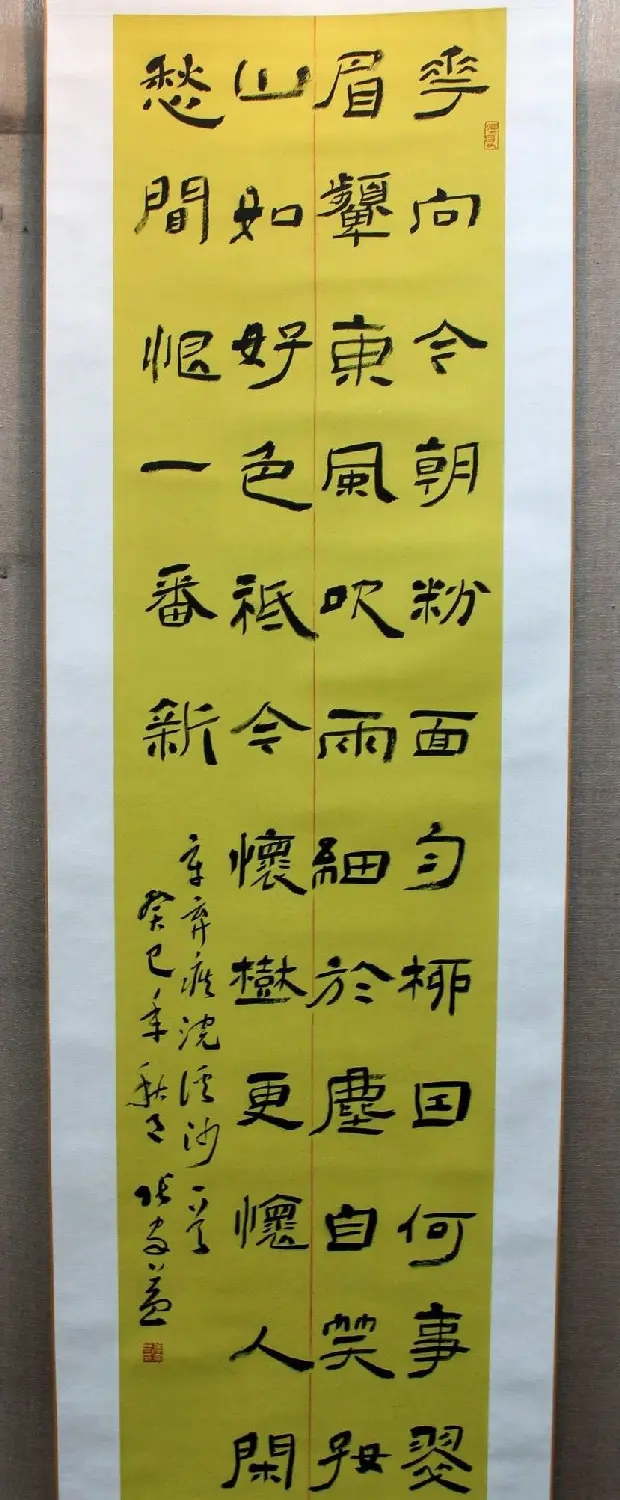 花向今朝粉面勻柳因何事翠
眉顰東風吹雨細於塵自笑好
山如好色祇今懷樹更懷人閑
愁間恨一番新
辛棄疾浣溪沙一首
癸巳年秋月